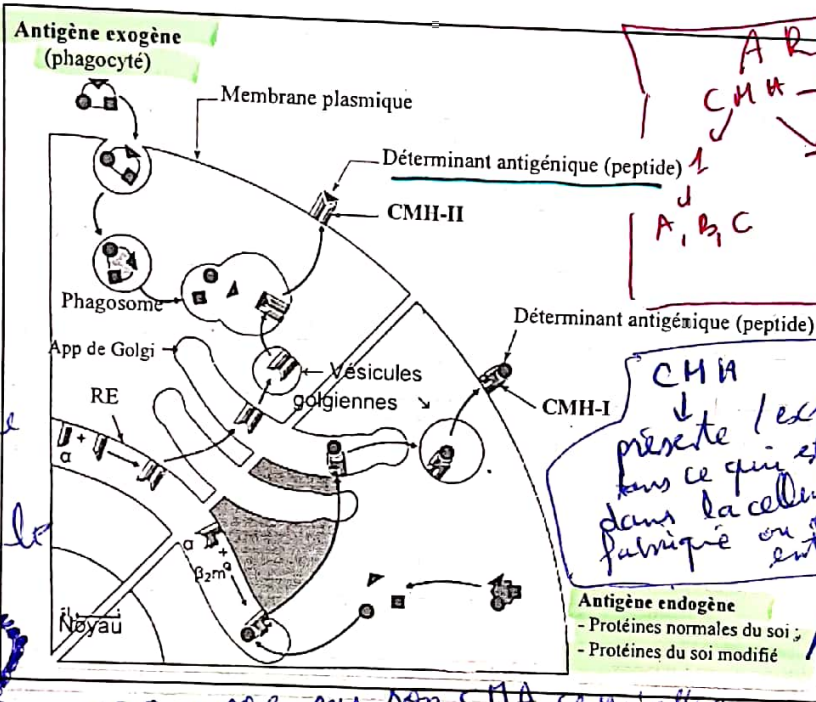 Antigène exogène
(phagocyté)
Membrane plasmique
Déterminant antigénique (peptide)
CMH-II
Phagosome
App de Golgi
Vésicules
golgiennes
RE
α +
Déterminant antigénique (peptide)
CMH-I
α
+
β₂m
Noyau
Antigène endogène
- Protéines normales du soi ;
- Protéines du soi modifié
A R
CMH
1
A, B, C
CMH
↓
présente / ex
ce qui
dans la cellu
fabriqué ou
ent
le
son CMH